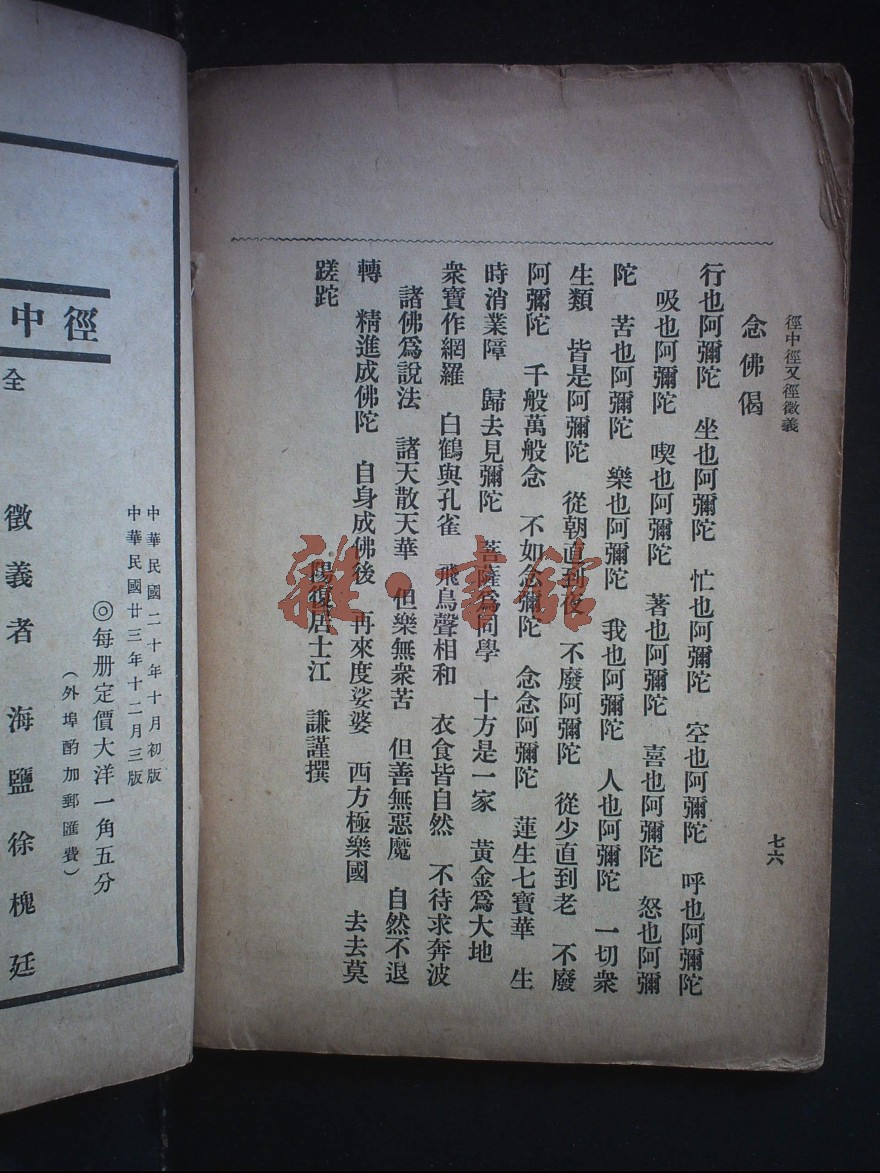 徑中徑又徑徵義
七六
念佛偈
行也阿彌陀　坐也阿彌陀　忙也阿彌陀　空也阿彌陀　呼也阿彌陀
吸也阿彌陀　喫也阿彌陀　著也阿彌陀　喜也阿彌陀　怒也阿彌
陀　苦也阿彌陀　樂也阿彌陀　我也阿彌陀　人也阿彌陀　一切衆
生類　皆是阿彌陀　從朝直到夜　不廢阿彌陀　從少直到老　不廢
阿彌陀　千般萬般念　不如念彌陀　念念阿彌陀　蓮生七寶華　生
時消業障　歸去見彌陀　菩薩爲同學　十方是一家　黃金爲大地
衆寶作網羅　白鶴與孔雀　飛鳥聲相和　衣食皆自然　不待求奔波
諸佛爲說法　諸天散天華　但樂無衆苦　但善無惡魔　自然不退
轉　精進成佛陀　自身成佛後　再來度娑婆　西方極樂國　去去莫
蹉跎　陽復居士江　謙謹撰
雜·書館
中華民國二十年十月初版
中華民國廿三年十二月三版
◎每册定價大洋一角五分
（外埠酌加郵匯費）
徑中
全
徵義者　海鹽徐槐廷